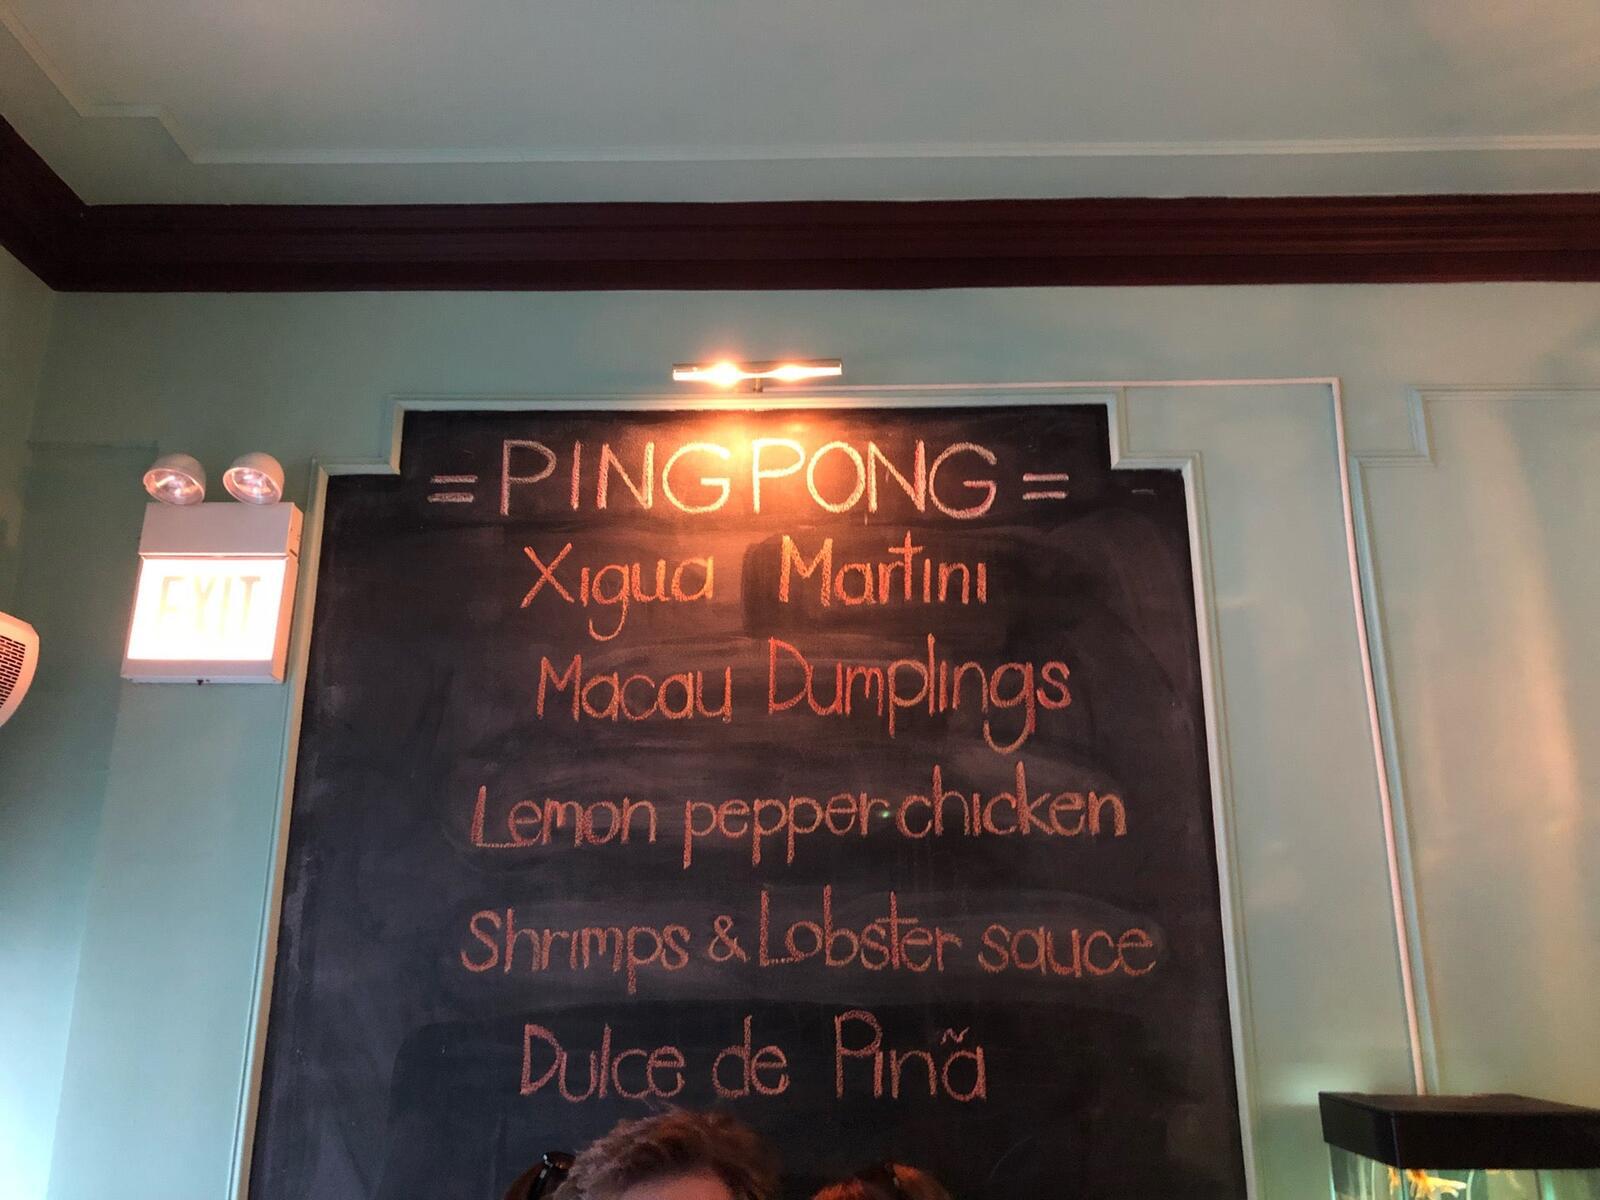 EXIT
= PING PONG =
Xigua Martini
Macau Dumplings
Lemon pepper chicken
Shrimps & Lobster sauce
Dulce de Pinã